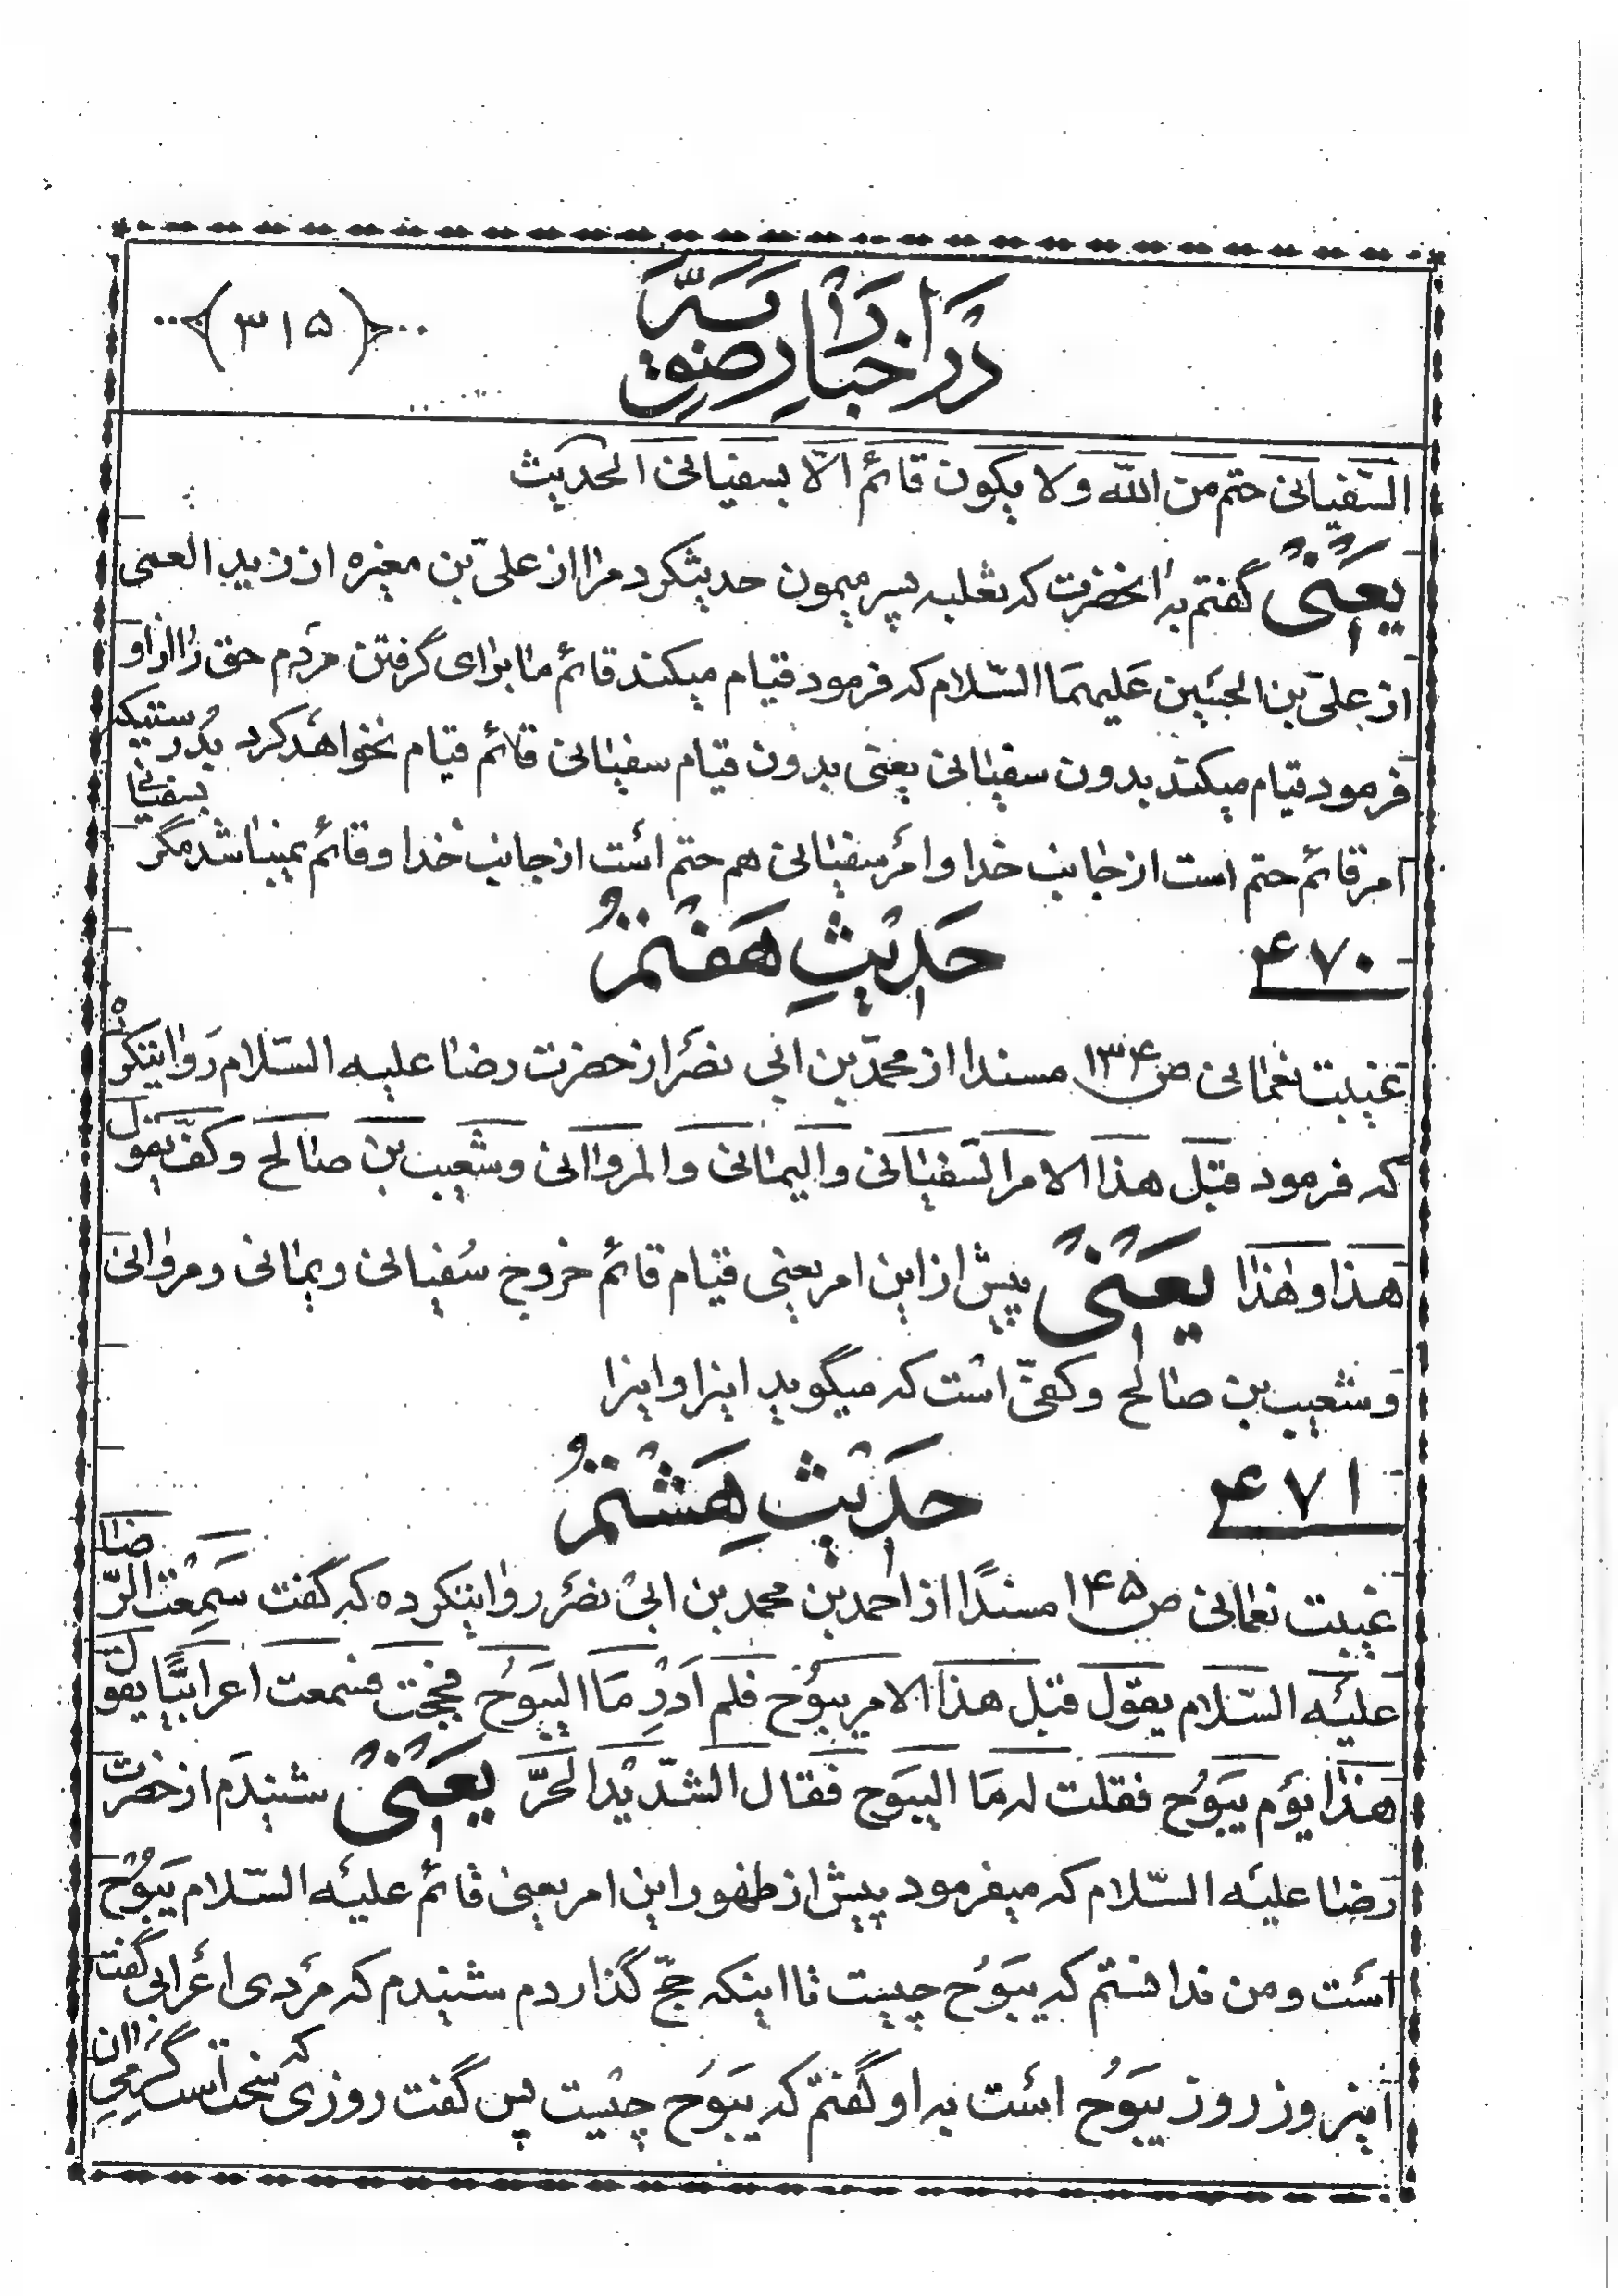 در اخبار رضویه
(۳۱۵)
السّفیانی حتم من اللّه ولا یکون قائم الّا بسفیانی الحدیث
یعنی گفتم به آنحضرت که ثعلبه پسر میمون حدیثکرد مرا از علیّ بن مغیره از زید العمی
از علیّ بن الحسین علیهما السّلام که فرمود قیام میکند قائم ما برای گرفتن مردم حق را از او
فرمود قیام میکند بدون سفیانی یعنی بدون قیام سفیانی قائم قیام نخواهد کرد بدرستیکه
امر قائم حتم است از جانب خدا و امر سفیانی هم حتم است از جانب خدا و قائم نمیباشد مگر بسفیانی
۴۷۰ حَدیثِ هَفتُم
غیبت نعمانی ص۱۳۴ مسندا از محمّد بن ابی نصر از حضرت رضا علیه السّلام روایتکرده
که فرمود قبل هذا الامر السّفیانی والیمانی والمروانی وشعیب بن صالح وکفّ یقول
هذا وهذا یعنی پیش از این امر یعنی قیام قائم خروج سُفیانی و یمانی و مروانی
و شعیب بن صالح و کفیّ است که میگوید اینرا و اینرا
۴۷۱ حَدیثِ هَشتُم
غیبت نعمانی ص۱۴۵ مسندًا از احمد بن محمد بن ابی نصر روایتکرده که گفت سَمِعْتُ الرّضا
علیه السّلام یقول قبل هذا الامر یبَوُح فلم اَدرِ مَا البیَوُح فحججت فسمعت اعرابیًّا یقول
هذا یَوم یبَوُح فقلت له مَا البیَوح فقال الشّدیدُ الحرّ یعنی شنیدم از حضرت
رضا علیه السّلام که میفرمود پیش از ظهور این امر یعنی قائم علیه السّلام یَبوُح
است و من ندانستم که یبَوُح چیست تا اینکه حجّ گذاردم شنیدم که مردی اعرابی گفت
اینروز روز یبَوُح است به او گفتم که یبَوُح چیست پس گفت روزی که سخت است گرمی آن